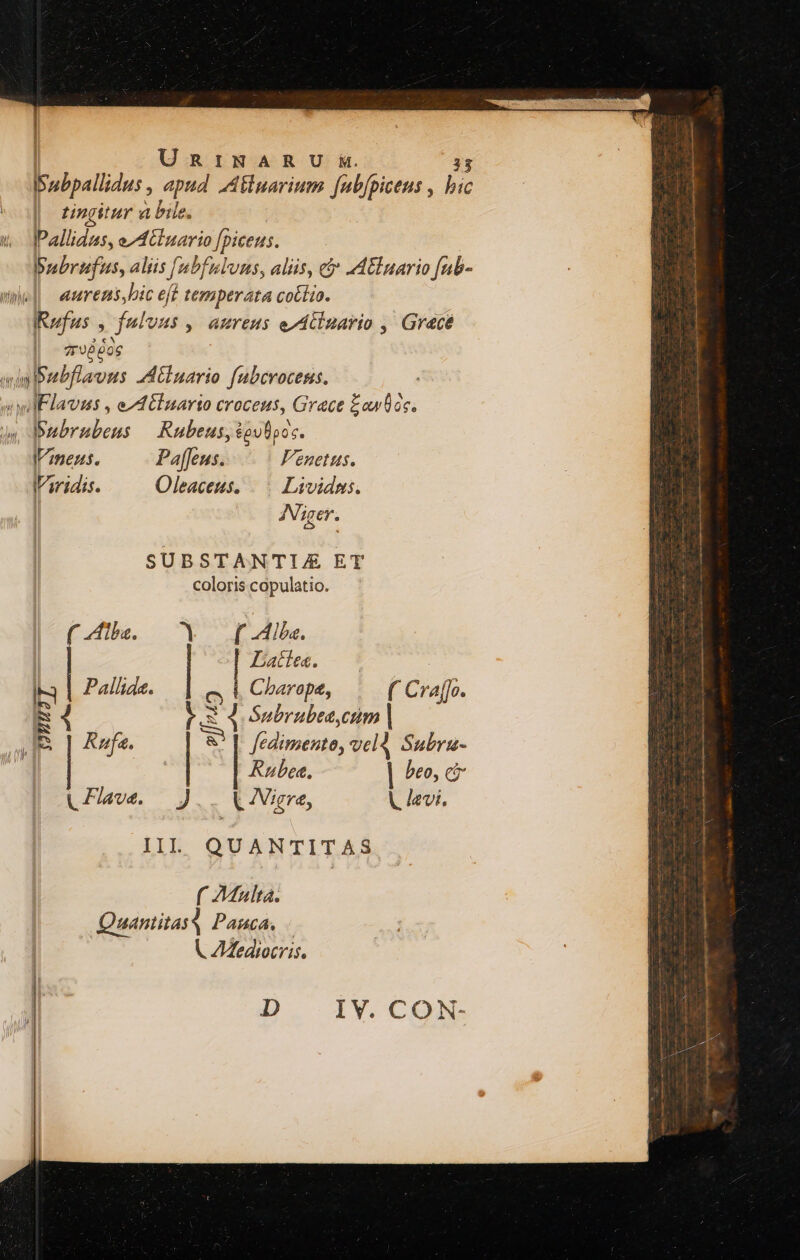 URINARUM. 33
Subpallidus, apud Actuarium ſubſpiceus, hic
tingitur à bile.
Pallidus, Actuario ſpiceus.
Subrufus, aliis ſubfulvus, aliis, & Actuario ſub-
aureus, hic eſt temperata coctio.
Rufus, fulvus, aureus Actuario, Græcè
πυῤῥὸς
Subflavus Actuario ſubcroceus.
Flavus, Actuario croceus, Græce ξανθὸς.
Subrubeus Rubeus, ἐρυθρὸς.
Vineus. Paſſeus. Venetus.
Viridis. Oleaceus. Lividus.
Niger.
SUBSTANTIÆ ET
coloris copulatio.
Albæ. Albæ.
Lacteæ.
Pallidæ. Charopæ, Craſſo.
Subrubeæ, cùm
Rufæ. ſedimento, vel Subru-
Rubeæ. beo, &
Flavæ. Nigræ, lævi.
III. QUANTITAS
Multa.
Quantitas Pauca.
Mediocris.
D IV. CON-